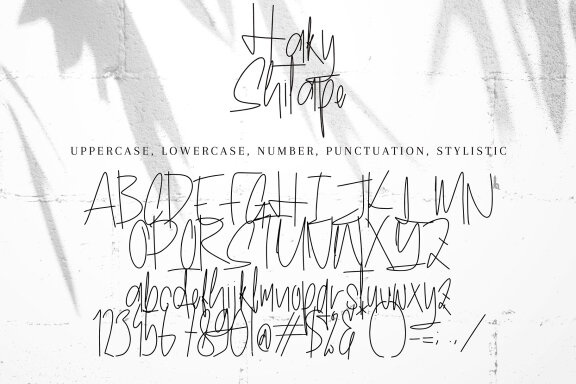 Haky
Shitape
UPPERCASE, LOWERCASE, NUMBER, PUNCTUATION, STYLISTIC
ABCDEFGHIJKLMN
OPQRSTUVWXYZ
abcdefghijklmnopqrstuvwxyz
1234567890!@#$%&()-=:.,/